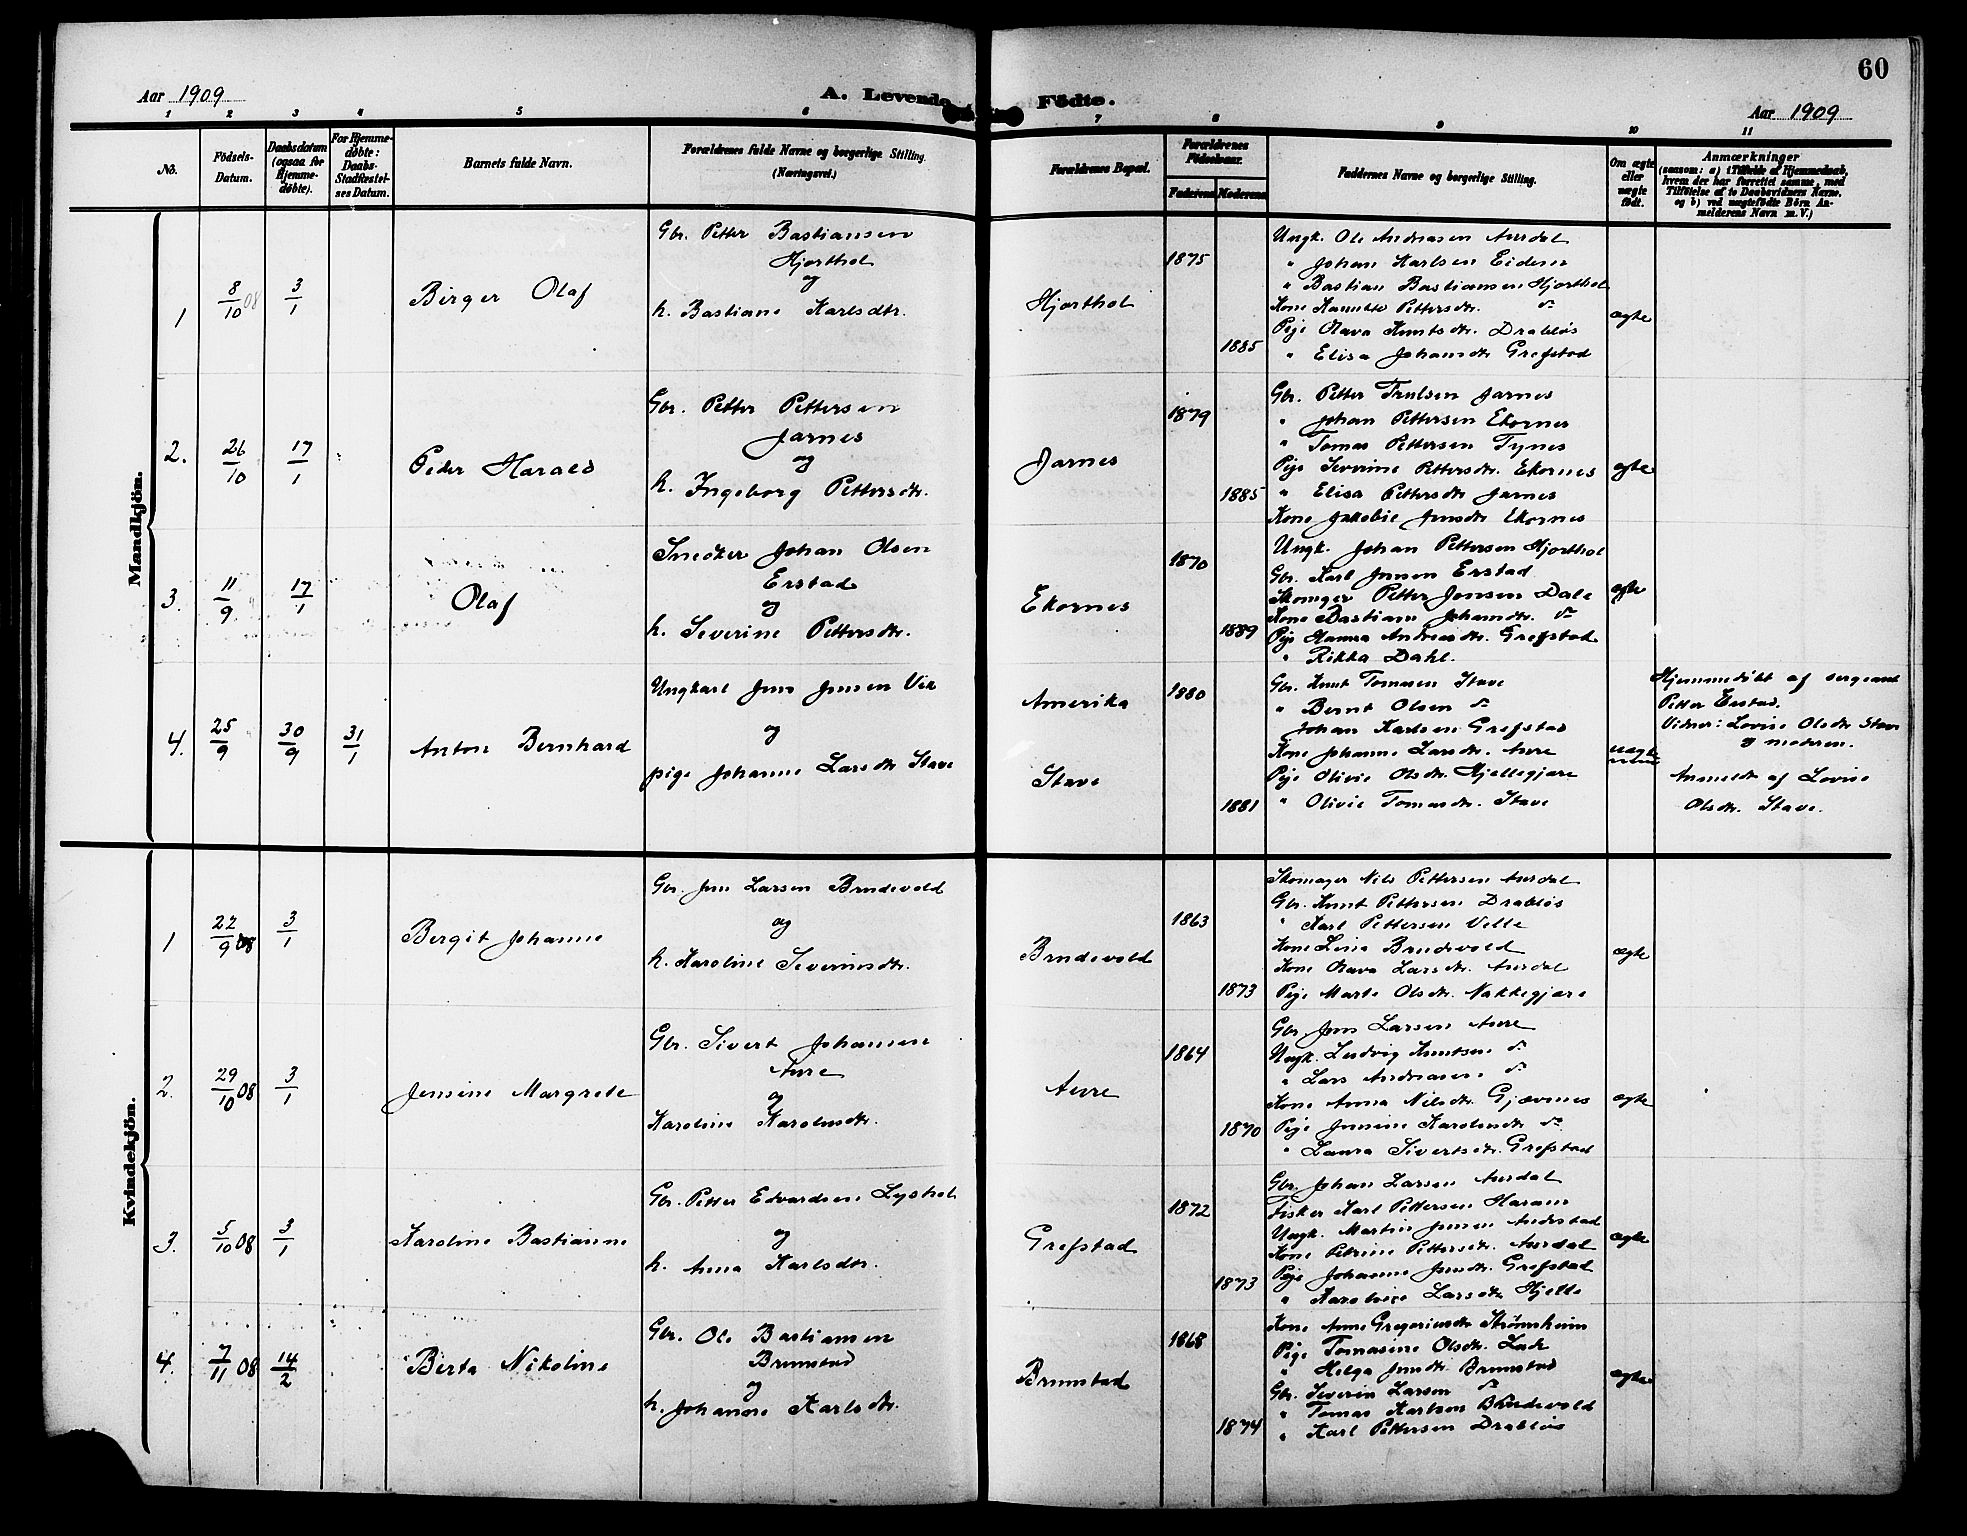 60
Aar 1909
A. Levende Fødte.
Aar 1909
1 2 3 4 5 6 7 8 9 10 11
No.
Fødsels-Datum.
Daabsdatum (ogsaa for Hjemme-døbte).
For Hjemme-døbte: Daabs-Stadfæstel-ses Datum.
Barnets fulde Navn.
Forældrenes fulde Navne og borgerlige Stilling. (Næringsvei.)
Forældrenes Bopæl.
Forældrenes Fødselsaar.
Faderens Moderens
Faddernes Navne og borgerlige Stilling.
Om ægte eller uægte født.
Anmærkninger
(saasom: a) i Tilfælde af Hjemmedaab, hvem der har forrettet samme, med Tilføielse af to Daabsvidners Navne, og b) ved uægtefødte Børn An-melderens Navn m. V.)
Mandkjön.
1
8/10 08
3/1
Birger Olaf
Gbr. Petter Bastiansen
Hjorthol
og
h. Bastiane Karlsdtr.
Hjorthol
1875
1885
Ungk. Ole Andreasen Aursdal
" Johan Karlsen Eidem
" Bastian Bastiansen Hjorthol
Kone Hanette Pettersdtr. do
Pige Olava Knutsdtr. Drabløs
" Elisa Johansdtr Grefstad
ægte
2.
26/10
17/1
Peder Harald
Gbr. Petter Pettersen
Jarnes
og
h. Ingeborg Pettersdtr.
Jarnes
1879
1885
Gbr. Petter Trulsen Jarnes
" Johan Pettersen Ekornes
" Tomas Pettersen Tynes
Pige Severine Pettersdtr. Ekornes
" Elisa Pettersdtr Jarnes
Kone Jakobie Jensdtr Ekornes
ægte
3.
11/9
17/1
Olaf
Snedker Johan Olsen
Erstad
og
h. Severine Pettersdtr.
Ekornes
1870
1889
Ungk. Johan Pettersen Hjorthol
Gbr. Karl Jensen Erstad
Skomager Petter Jensen Dale
Kone Bastiane Johansdtr. do
Pige Hanna Andreasdtr. Grefstad
" Rikka Dahl.
ægte
4.
25/9
30/9
31/1
Anton Bernhard
Ungkarl Jens Jensen Vik
og
pige Johanne Larsdtr Stave
Amerika
Stave
1880
1881
Gbr. Knut Tomasen Stave
" Bernt Olsen do
Johan Karlsen Grefstad
Kone Johanne Larsdtr. Aure
Pige Olivie Olsdtr. Hjellegjære
" Olivie Tomasdtr. Stave
uægte
Hjemmedøbt af sergeant
Petter Erstad.
Vidner: Lovise Olsdtr Stave
og moderen.
Anmeldt af Lovise
Olsdtr. Stave.
Kvindekjön.
1
22/9 08
3/1
Bergit Johanne
Gbr. Jens Larsen Brudevold
og
h. Karoline Severinsdtr.
Brudevold
1863
1873
Skomager Nils Pettersen Aursdal
Gbr. Knut Pettersen Drabløs
" Karl Pettersen Velle
Kone Lina Brudevold
Kone Olava Larsdtr. Aursdal
Pige Marte Olsdtr. Nakkegjære
ægte
2.
29/10 08
3/1
Jensine Margrete
Gbr. Sivert Johansen
Aure
og
Karoline Karolusdtr.
Aure
1864
1870
Gbr Jens Larsen Aure
Ungk. Ludvig Knutsen do
" Lars Andreasen do
Kone Anna Nilsdtr. Gjævenes
Pige Jensine Karolusdtr do
" Laura Sivertsdtr. Grefstad
ægte
3.
5/10 08
3/1
Karoline Bastianne
Gbr. Petter Edvardsen Lyshol
og
h. Anna Karlsdtr.
Grefstad
1872
1873
Gbr. Johan Larsen Aursdal
Fisker Karl Pettersen Haram
Ungk. Martin Jensen Andestad
Kone Petrine Pettersdtr. Aursdal
Pige Johanne Jensdtr. Grefstad
" Karoline Larsdtr Hjelle
ægte
4.
7/11 08
14/2
Berta Nikoline
Gbr. Ole Bastiansen
Brunstad
og
h. Johanne Karlsdtr.
Brunstad
1868
1874
Kone Anne Gregoriusdtr Strømsheim
Pige Tomasine Olsdtr. Lade
" Helga Jensdtr Brunstad
Gbr. Severin Larsen do
" Tomas Karlsen Brudevold
" Karl Pettersen Drabløs
ægte